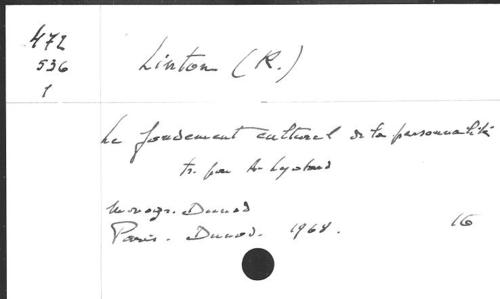 472
536
1
Linton (R.)
Le fondement culturel de la personnalité
tr. par A. Lyotard
Monogr. Dunod
Paris. Dunod. 1968. 16